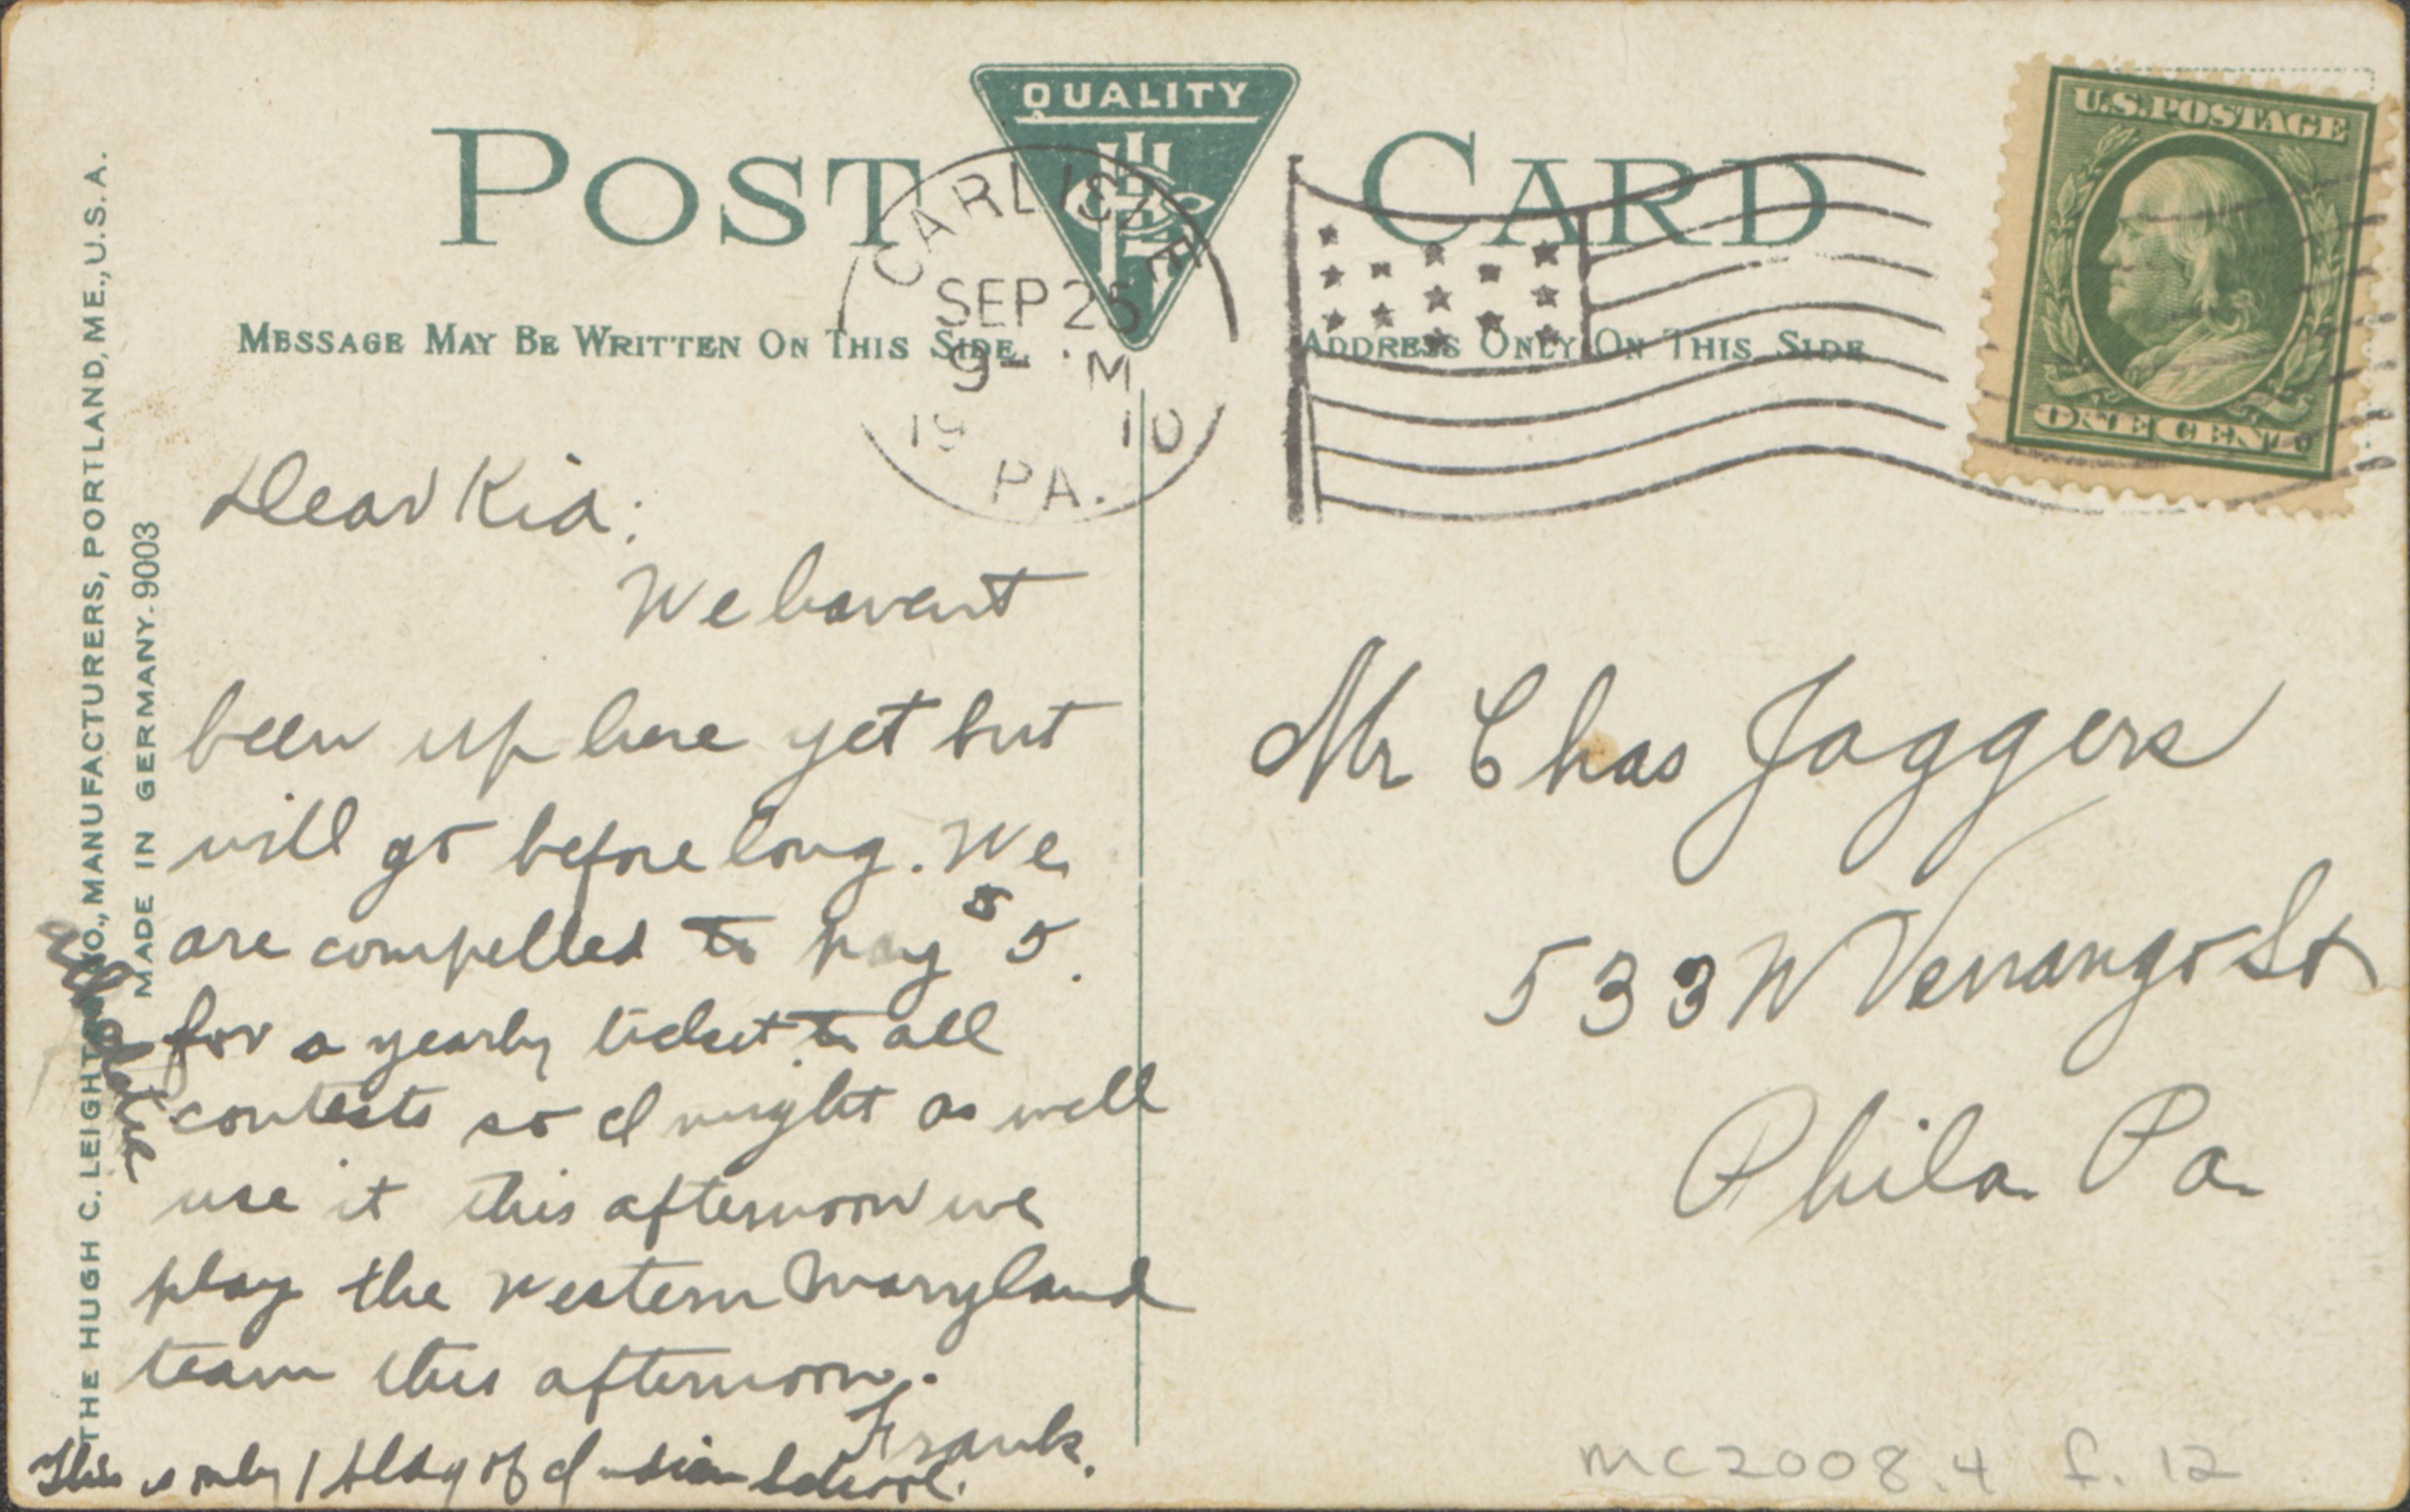 POST CARD
QUALITY
CARLISLE
SEP 25
9- M
1910
PA.
U.S. POSTAGE
ONE CENT
MESSAGE MAY BE WRITTEN ON THIS SIDE.
ADDRESS ONLY ON THIS SIDE
THE HUGH C. LEIGHTON CO., MANUFACTURERS, PORTLAND, ME., U.S.A.
MADE IN GERMANY. 9003
Dear Kid:
We havent
been up here yet but
will go before long. We
are compelled to pay $5.
for a yearly ticket to all
contests so I might as well
use it this afternoon we
play the Western Maryland
team this afternoon.
Frank.
This is only 1 bldg of Indian School.
Mr Chas Jaggers
533 W Venango St
Phila. Pa.
MC2008.4 f. 12